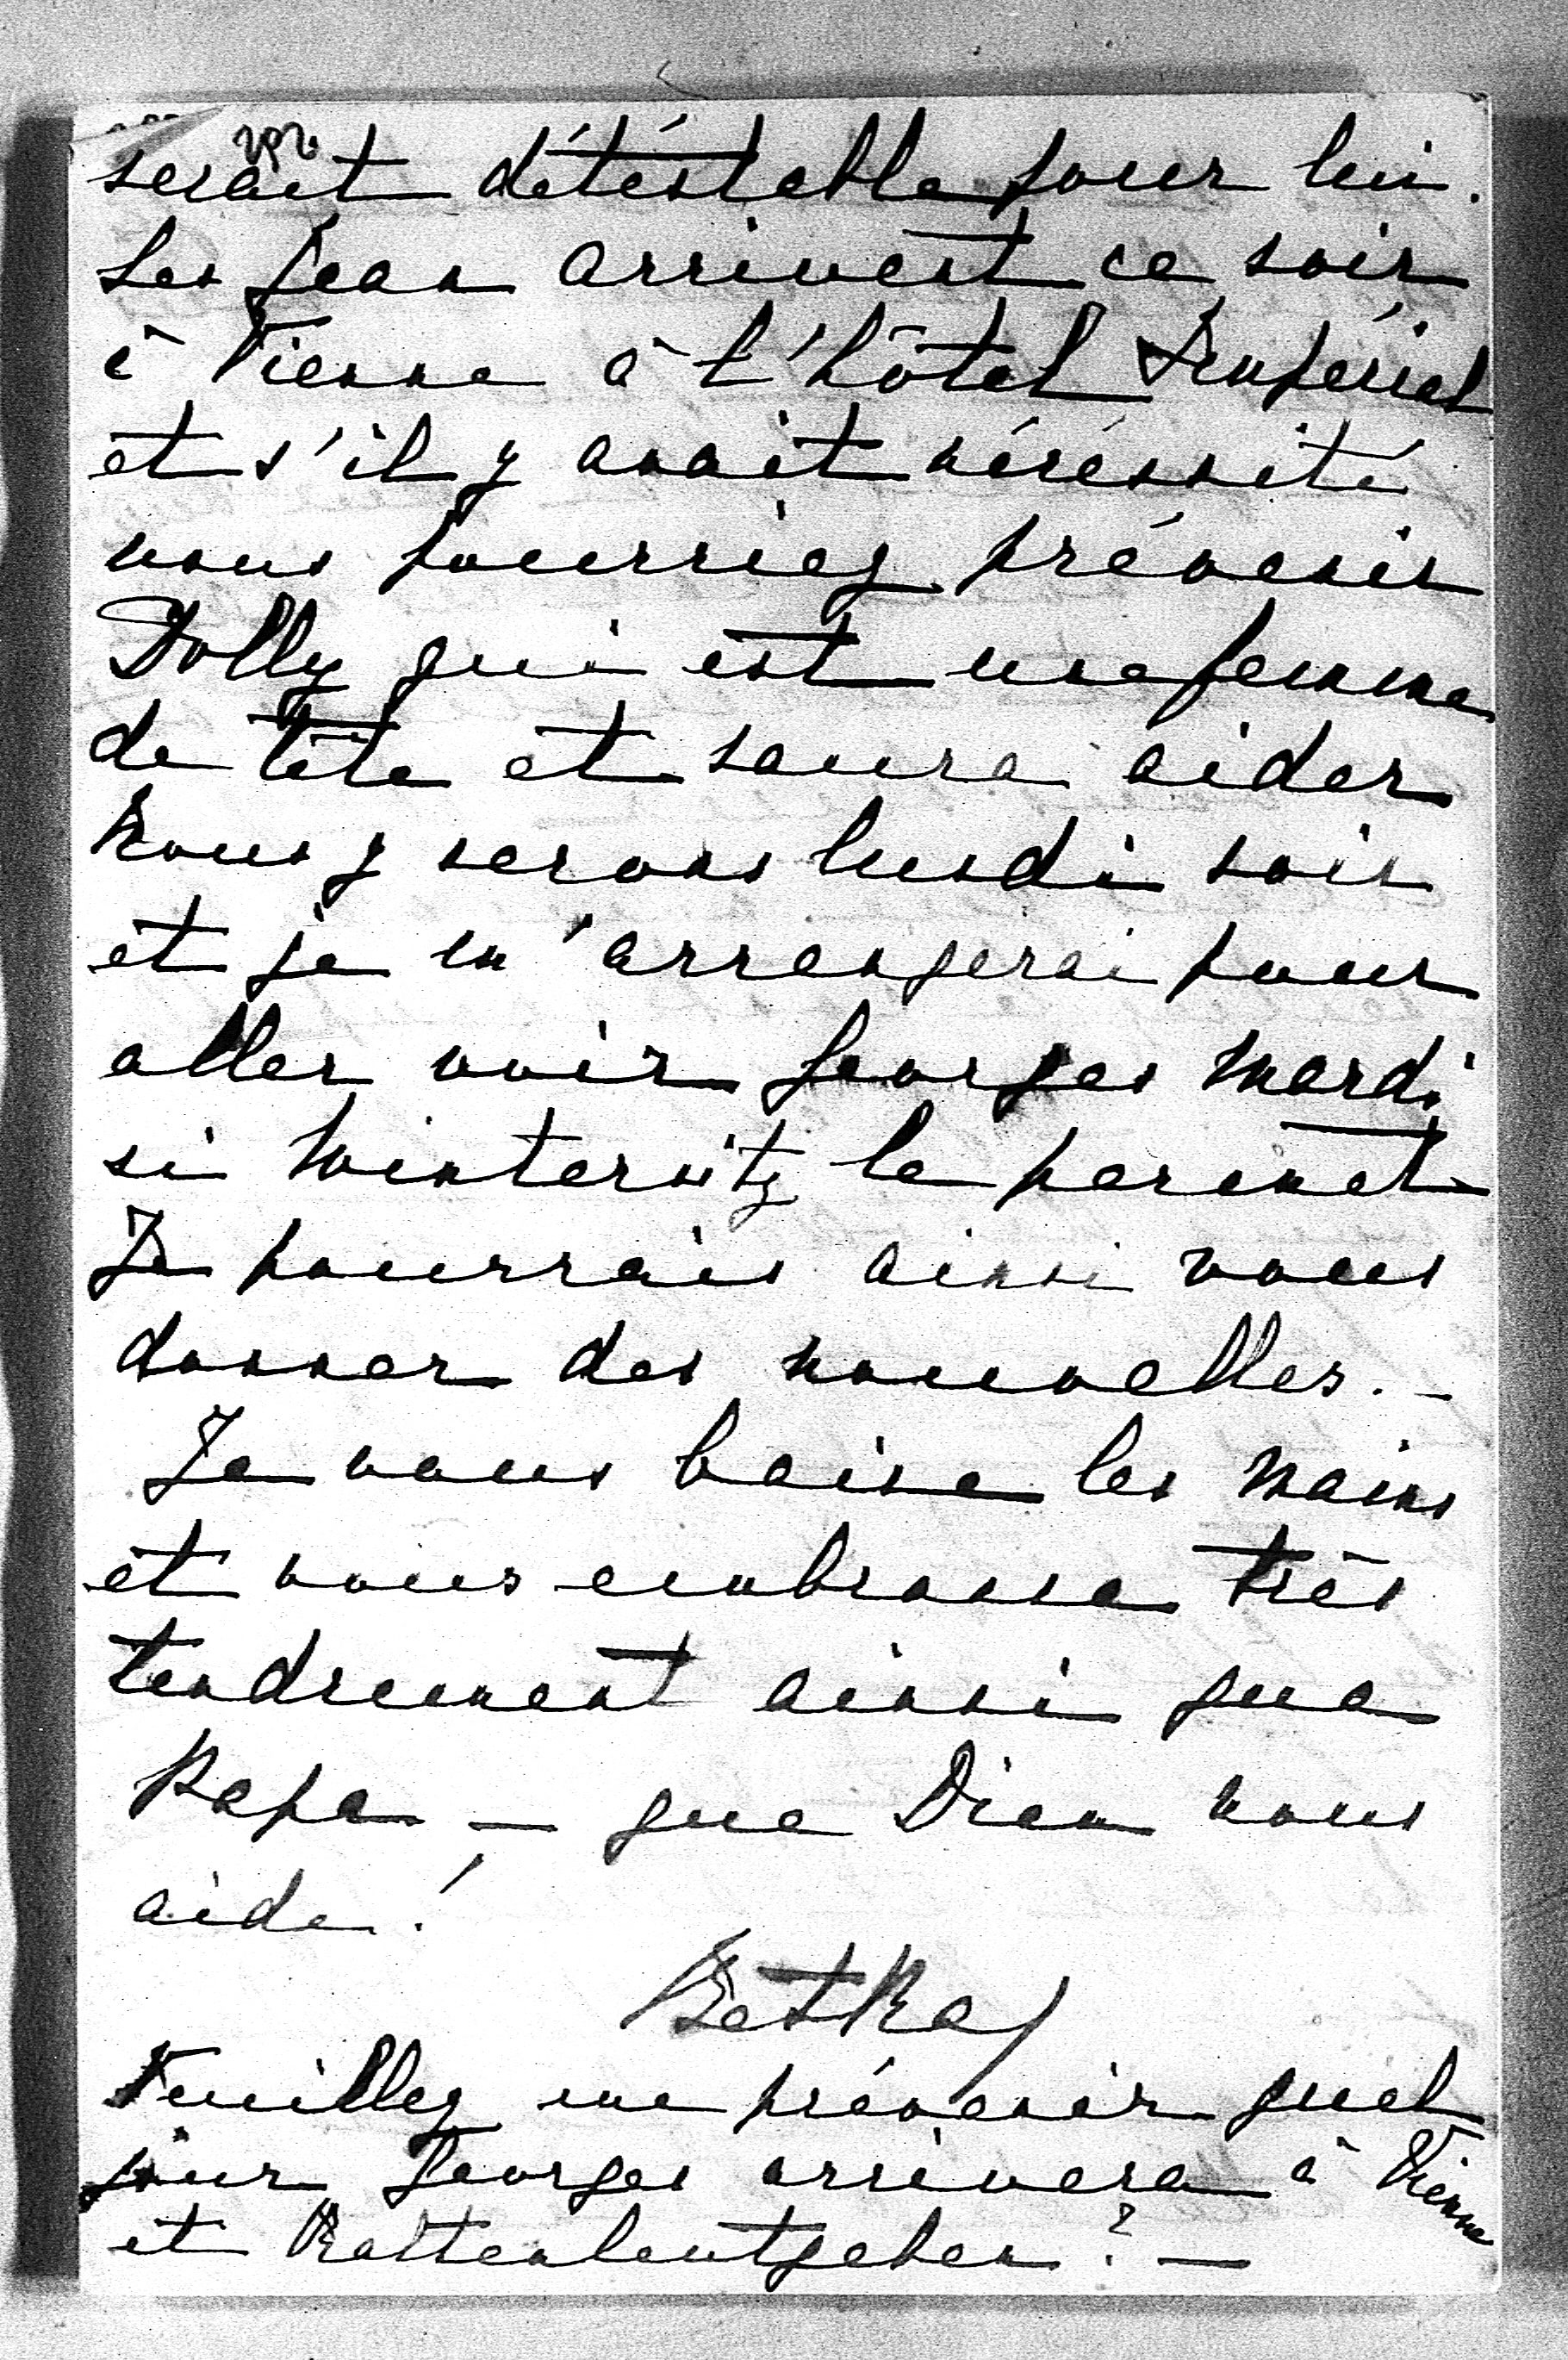 serait détéstable pour lui.
Les Jean arrivent ce soir
à Vienne à l'hôtel Impérial
et s'il y avait nécéssité
vous pourriez prévenir
Dolly qui est une femme
de tête et saura aider
Nous y serons lundi soir
et je m'arrangerai pour
aller voir Georges mardi
si Winternitz le permet
Je pourrais ainsi vous
donner des nouvelles. -
Je vous baise les mains
et vous embrasse très
tendrement ainsi que
Papa — que Dieu nous
aide!
Betka
Veuillez me prévenir quel
jour Georges arrivera à Vienne
et Kaltenleutgeben? —